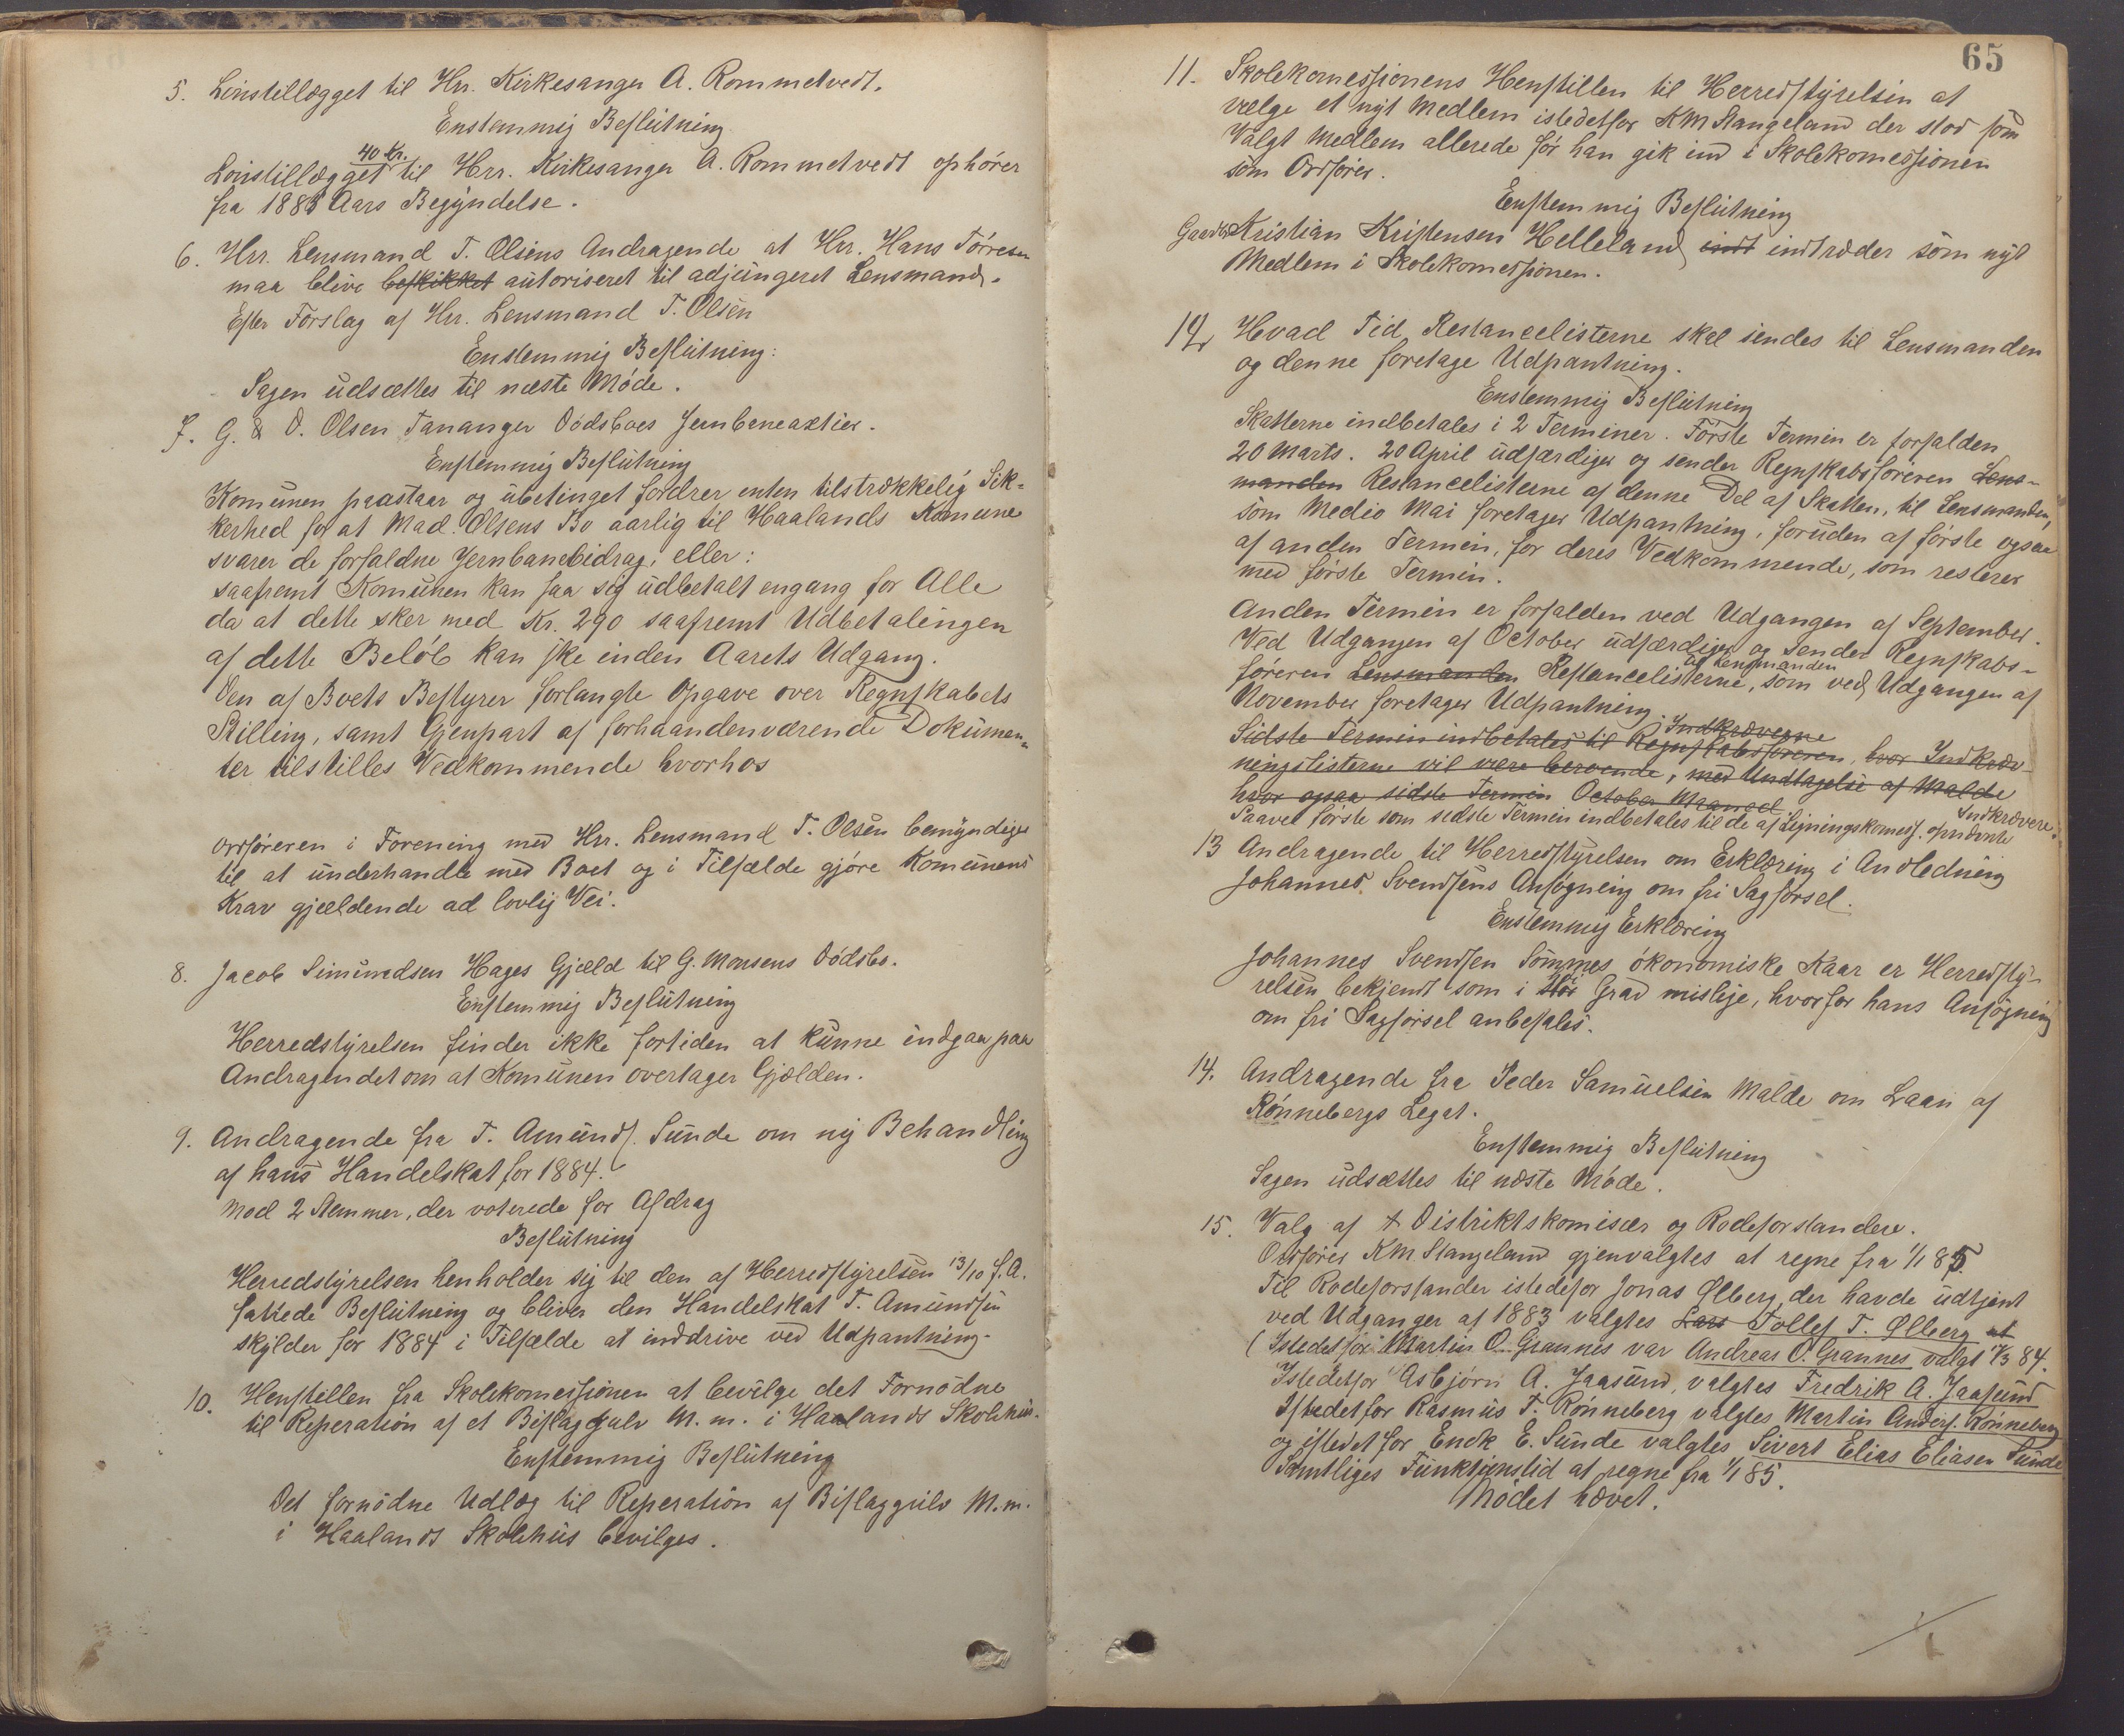 5. Lönstillægget til Hrr. Kirkesanger A. Rommetvedt.
Enstemmig Beslutning
40 Kr.
Lönstillægget til Hrr. Kirkesanger A. Rommetvedt ophörer
fra 1885 Aars Begyndelse.
6. Hrr. Lensmand T. Olsens Andragende at Hrr. Hans Törresen
maa blive beskikket autoriseret til adjungeret Lensmand.
Efter Forslag af Hrr. Lensmand T. Olsen
Enstemmig Beslutning:
Sagen udsættes til næste Möde.
7. G. & O. Olsen Tananger Dödsboes Jernbaneaktier.
Enstemmig Beslutning
Komunen paastaar og ubetinget fordrer enten tilstrækkelig Sik-
kerhed for at Mad. Olsens Bo aarlig til Haalands Komune
svarer de forfaldne Jernbanebidrag, eller:
saafremt Komunen kan faa sig udbetalt engang for Alle
da at dette sker med Kr. 290 saafremt Udbetalingen
af dette Belöb kan ske inden Aarets Udgang.
Den af Boets Bestyrer forlangte Opgave over Regnskabets
Stilling, samt Gjenpart af forhaandenværende Dokumen-
ter tilstilles Vedkommende hvorhos
Ordföreren i Forening med Hrr. Lensmand T. Olsen bemyndiges
til at underhandle med Boet og i Tilfælde gjöre Komunens
Krav gjældende ad lovlig Vei.
8. Jacob Simundsen Hages Gjæld til G. Monsens Dödsbo.
Enstemmig Beslutning
Herredstyrelsen finder ikke fortiden at kunne indgaa paa
Andragendet om at Komunen overtager Gjælden.
9. Andragende fra T. Amunds. Sunde om ny Behandling
af hans Handelskat for 1884.
Mod 2 Stemmer, der voterede for Afdrag
Beslutning
Herredstyrelsen henholder sig til den af Herredstyrelsen 13/10 f.A.
fattede Beslutning og bliver den Handelskat T. Amundsen
skylder for 1884 i Tilfælde at inddrive ved Udpantning.
10. Henstillen fra Skolekomessionen at bevilge det Fornödne
til Reperation af et Bislaggulv M.m. i Haalands Skolehus.
Enstemmig Beslutning
Det fornödne Udlæg til Reperation af Bislaggulv M.m.
i Haalands Skolehus bevilges.
65
11. Skolekomessionens Henstillen til Herredstyrelsen at
vælge et nyt Medlem istedetfor KM Stangeland der stod som
Valgt Medlem allerede för han gik ind i Skolekomessionen
som Ordförer.
Enstemmig Beslutning
Gaardb. Kristian Kristensen Helleland indt indtræder som nyt
Medlem i Skolekomessionen.
12. Hvad Tid Restancelisterne skal sendes til Lensmanden
og denne foretage Udpantning.
Enstemmig Beslutning
Skatterne indbetales i 2 Terminer. Förste Termin er forfalden
20 Marts. 20 April udfærdiger og sender Regnskabsföreren Lens-
manden Restancelisterne af denne Del af Skatten, til Lensmanden,
som Medio Mai foretager Udpantning, foruden af förste ogsaa
af anden Termin, for deres Vedkommende, som resterer
med förste Termin.
Anden Termin er forfalden ved Udgangen af September.
Ved Udgangen af October udfærdiger og sender Regnskabs-
til Lensmanden
föreren Lensmanden Restancelisterne, som ved Udgangen af
November foretager Udpantning.
Indkræverne
Sidste Termin indbetales til Regnskabsföreren, hvor Indkræv-
ningslisterne vil være beroende, med Undtagelse af Malde
hvor ogsaa sidste Termin October Maaned
Indkrævere.
Saavel förste som sidste Termin indbetales til de af Ligningskomess. opnævnte
13 Andragende til Herredstyrelsen om Erklæring i Anledning
Johannes Svendsens Ansögning om fri Sagförsel.
Enstemmig Erklæring
Johannes Svendsen Sömmes ökonomiske Kaar er Herredsty-
relsen bekjendt som i Höi Grad mislige, hvorfor hans Ansögning
om fri Sagförsel anbefales.
14. Andragende fra Peder Samuelsen Malde om Laan af
Rönnebergs Legat.
Enstemmig Beslutning
Sagen udsættes til næste Möde.
15. Valg af Distriktskomisær og Rodeforstandere.
Ordförer KM. Stangeland gjenvalgtes at regne fra 1/1 85.
Til Rodeforstander istedefor Jonas Ølberg der havde udtjent
ved Udgangen af 1883 valgtes Lars Tollef T. Ølberg at
(Istedetfor Martin O. Grannes var Andreas O. Grannes valgt 84.
Istedetfor Asbjörn A. Jaasund, valgtes Fredrik A. Jaasund
Istedetfor Rasmus T. Rönneberg valgtes Martin Anders. Rönneberg
og istedetfor Enok E. Sunde valgtes Sivert Elias Eliasen Sunde
Samtliges Funktionstid at regne fra 1/1 85.
Mödet hævet.